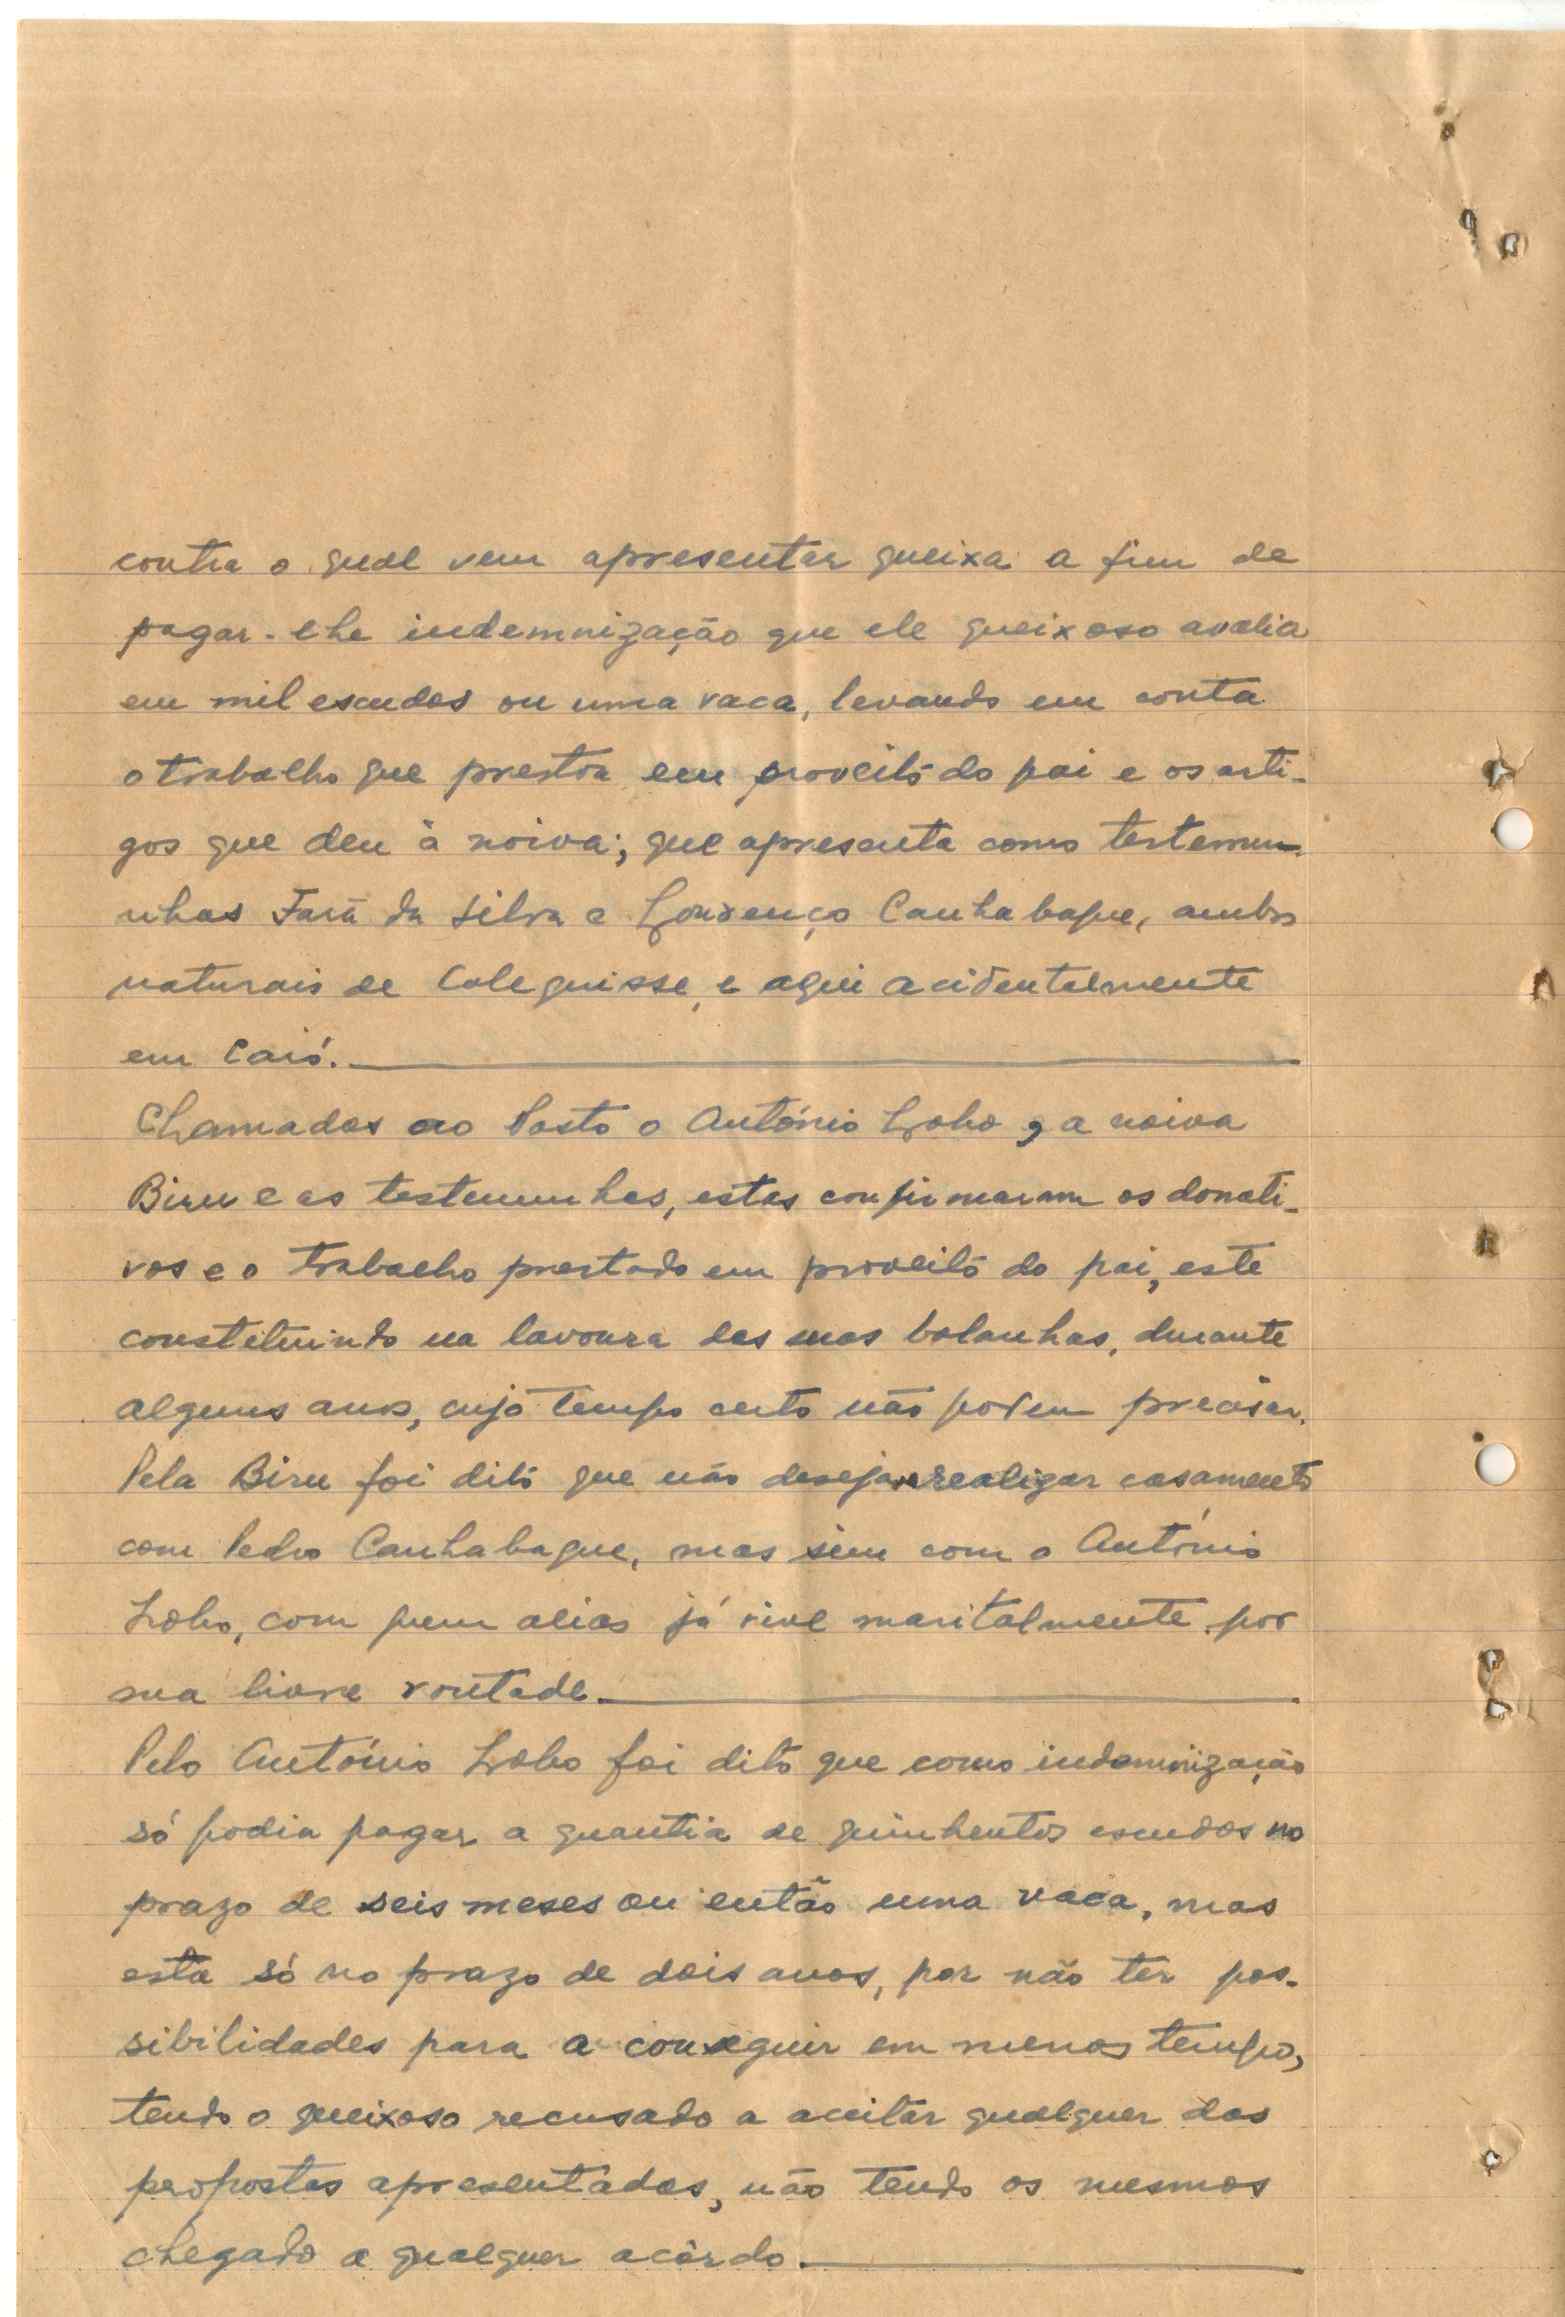 contra o qual vem apresentar queixa a fim de
pagar-lhe indemnização que ele queixoso avalia
em mil escudos ou uma vaca, levando em conta
o trabalho que prestou em proveito do pai e os arti-
gos que deu à noiva; que apresenta como testemu-
nhas da Silva e Lourenço Canhabaque, ambos
naturais de Caleguisse, e aqui acidentalmente
em Caió.
Chamados ao Posto o António Lobo, a noiva
Biru e as testemunhas, estas confirmaram os donati-
vos e o trabalho prestado em proveito do pai, este
constituindo na lavoura das suas bolanhas, durante
alguns anos, cujo tempo certo não podem precisar.
Pela Biru foi dito que não deseja realizar casamento
com Pedro Canhabaque, mas sim com o António
Lobo, com quem alias já vive maritalmente por
sua livre vontade.
Pelo António Lobo foi dito que como indemnização
só podia pagar a quantia de quinhentos escudos no
prazo de seis meses ou então uma vaca, mas
esta só no prazo de dois anos, por não ter pos-
sibilidades para a conseguir em menos tempo,
tendo o queixoso recusado a aceitar qualquer das
propostas apresentadas, não tendo os mesmos
chegado a qualquer acôrdo.